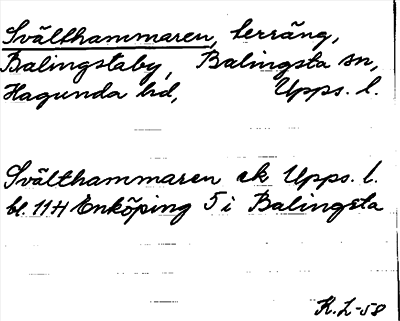 Svälthammaren, terräng,
Balingstaby, Balingsta sn,
Hagunda hd, Upps. l.
Svälthammaren ek Upps. l.
bl. 11H Enköping 5 i Balingsta
K.L-58